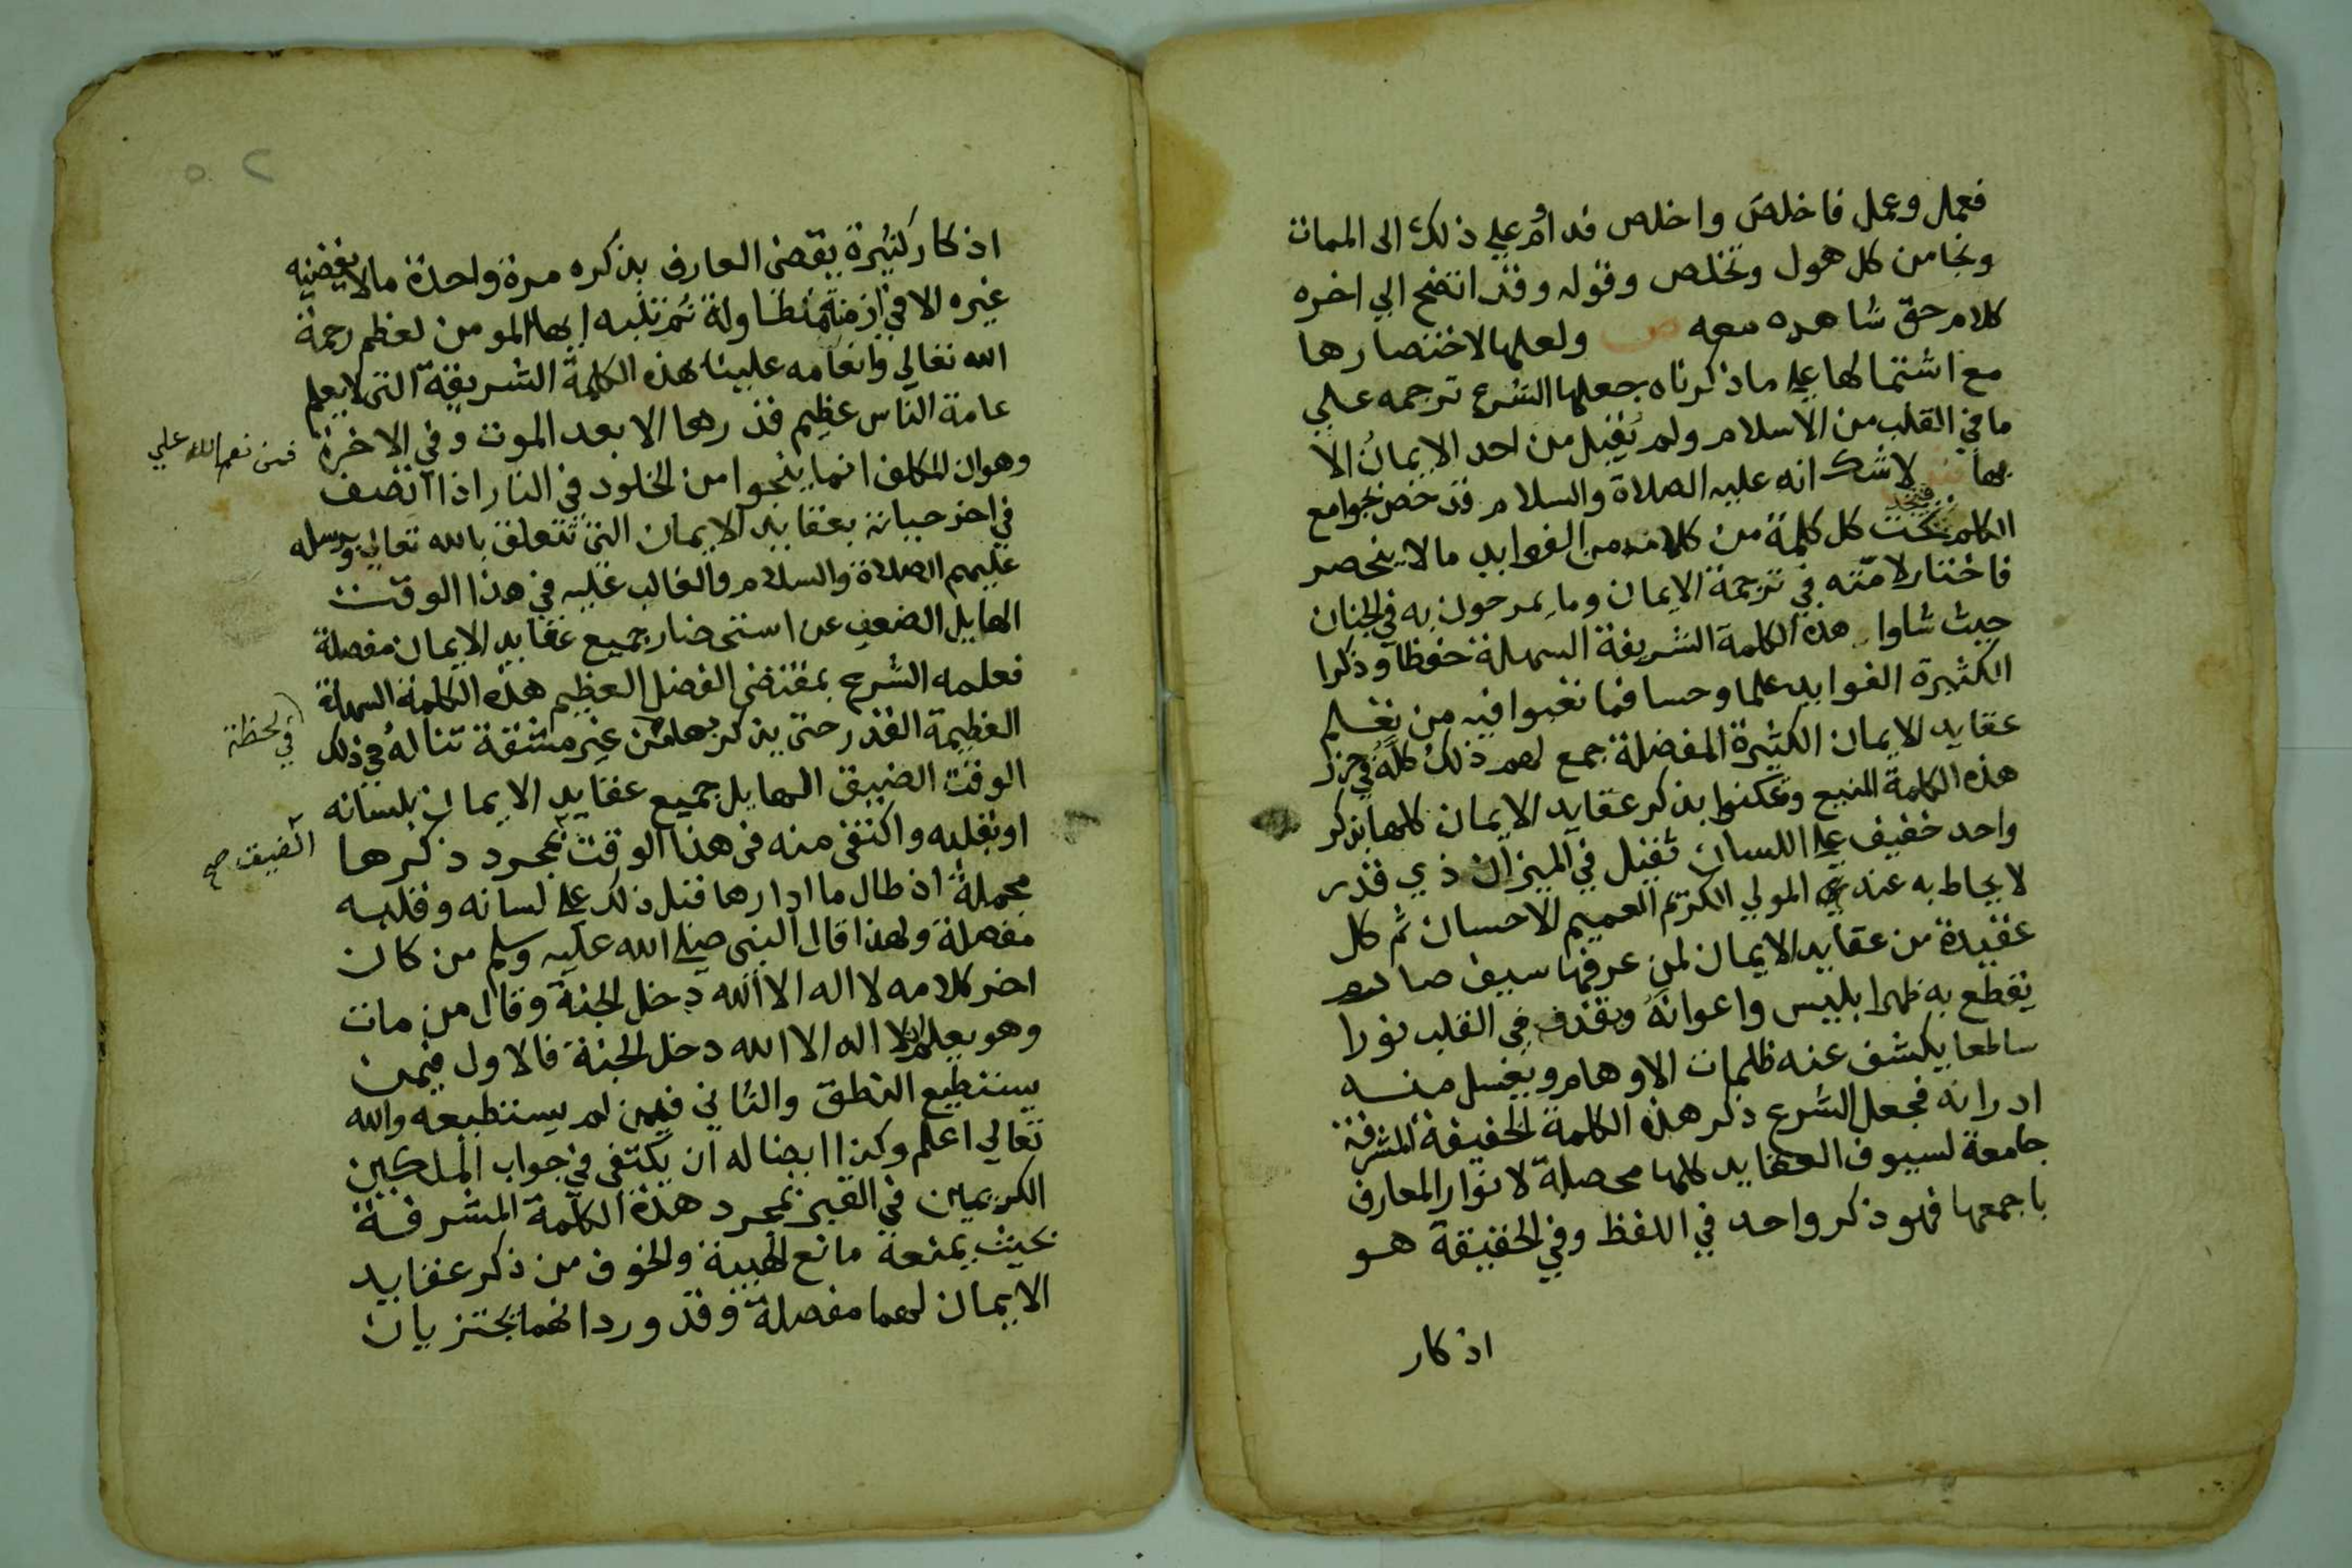 فعمل وعمل فاخلص واخلص فداوم علي ذلك الى الممات
ونجا من كل هول وتخلص وقوله وقد اتضح الي اخره
كلام حق شاهده معه ص ولعلها لاختصارها
مع اشتمالها على ما ذكرناه جعلها الشرع ترجمه علي
ما في القلب من الاسلام ولم يقبل من احد الايمان الا
بها ش لا شك انه عليه الصلاة والسلام قد خص بجوامع
الكلم فتجد تحت كل كلمة من كلامه من الفوايد مالا ينحصر
فاختار لامته في ترجمة الايمان وما يمرحون به في الجنان
حيث شاوا هذه الكلمة الشريفة السهلة حفظا وذكرا
الكثيرة الفوايد علما وحسا فما تعبوا فيه من تعلم
عقايد الايمان الكثيرة المفضلة جمع لهم ذلك كله في حرز
هذه الكلمة المنيع وتمكنوا بذكر عقايد الايمان كلها بذكر
واحد خفيف على اللسان ثقيل في الميزان ذي قدر
لا يحاط به عند المولي الكريم العميم الاحسان ثم كل
عقيدة من عقايد الايمان لمن عرفها سيف صارم
يقطع به ظهر ابليس واعوانه ويقذف في القلب نورا
ساطعا يكشف عنه ظلمات الاوهام ويغسل منه
ادرانه فجعل الشرع ذكر هذه الكلمة الخفيفة المشرفة
جامعة لسيوف العقايد كلها محصلة لانوار المعارف
باجمعها فهو ذكر واحد في اللفظ وفي الحقيقة هو
اذكار
٥٢
اذكار كثيرة يقضى العارف بذكره مرة واحدة مالا يقضيه
غيره الا في ازمنة متطاولة ثم تنبه ايها المومن لعظم رحمة
الله تعالي وانعامه علينا بهذه الكلمة الشريفة التى لا يعلم
عامة الناس عظيم قدرها الا بعد الموت وفي الاخرة
فمن نعم الله علي
وهو ان المكلف انما ينجوا من الخلود في النار اذا اتصف
في اخر حياته بعقايد الايمان التى تتعلق بالله تعالي وبرسله
عليهم الصلاة والسلام والغالب عليه في هذا الوقت
الهايل الضعف عن استحضار جميع عقايد الايمان مفصلة
فعلمه الشرع بمقتضى الفضل العظيم هذه الكلمة السهلة
في لحظة
العظيمة القدر حتى يذكر بها من غير مشقة تناله في ذلك
الوقت الضيق الهايل جميع عقايد الايمان بلسانه
او بقلبه واكتفى منه في هذا الوقت بمجرد ذكرها
الضيق صح
مجملة اذ طال ما ادارها قبل ذلك على لسانه وقلبه
مفصلة ولهذا قال النبى صلى الله عليه وسلم من كان
اخر كلامه لا اله الا الله دخل الجنة وقال من مات
وهو يعلم ان لا اله الا الله دخل الجنة فالاول فيمن
يستطيع النطق والثاني فيمن لم يستطيعه والله
تعالي اعلم وكذا ايضا له ان يكتفى في جواب الملكين
الكريمين في القبر بمجرد هذه الكلمة المشرفة
بحيث يمنعه مانع الهيبة والخوف من ذكر عقايد
الايمان لهما مفصلة وقد ورد انهما يجتزيان